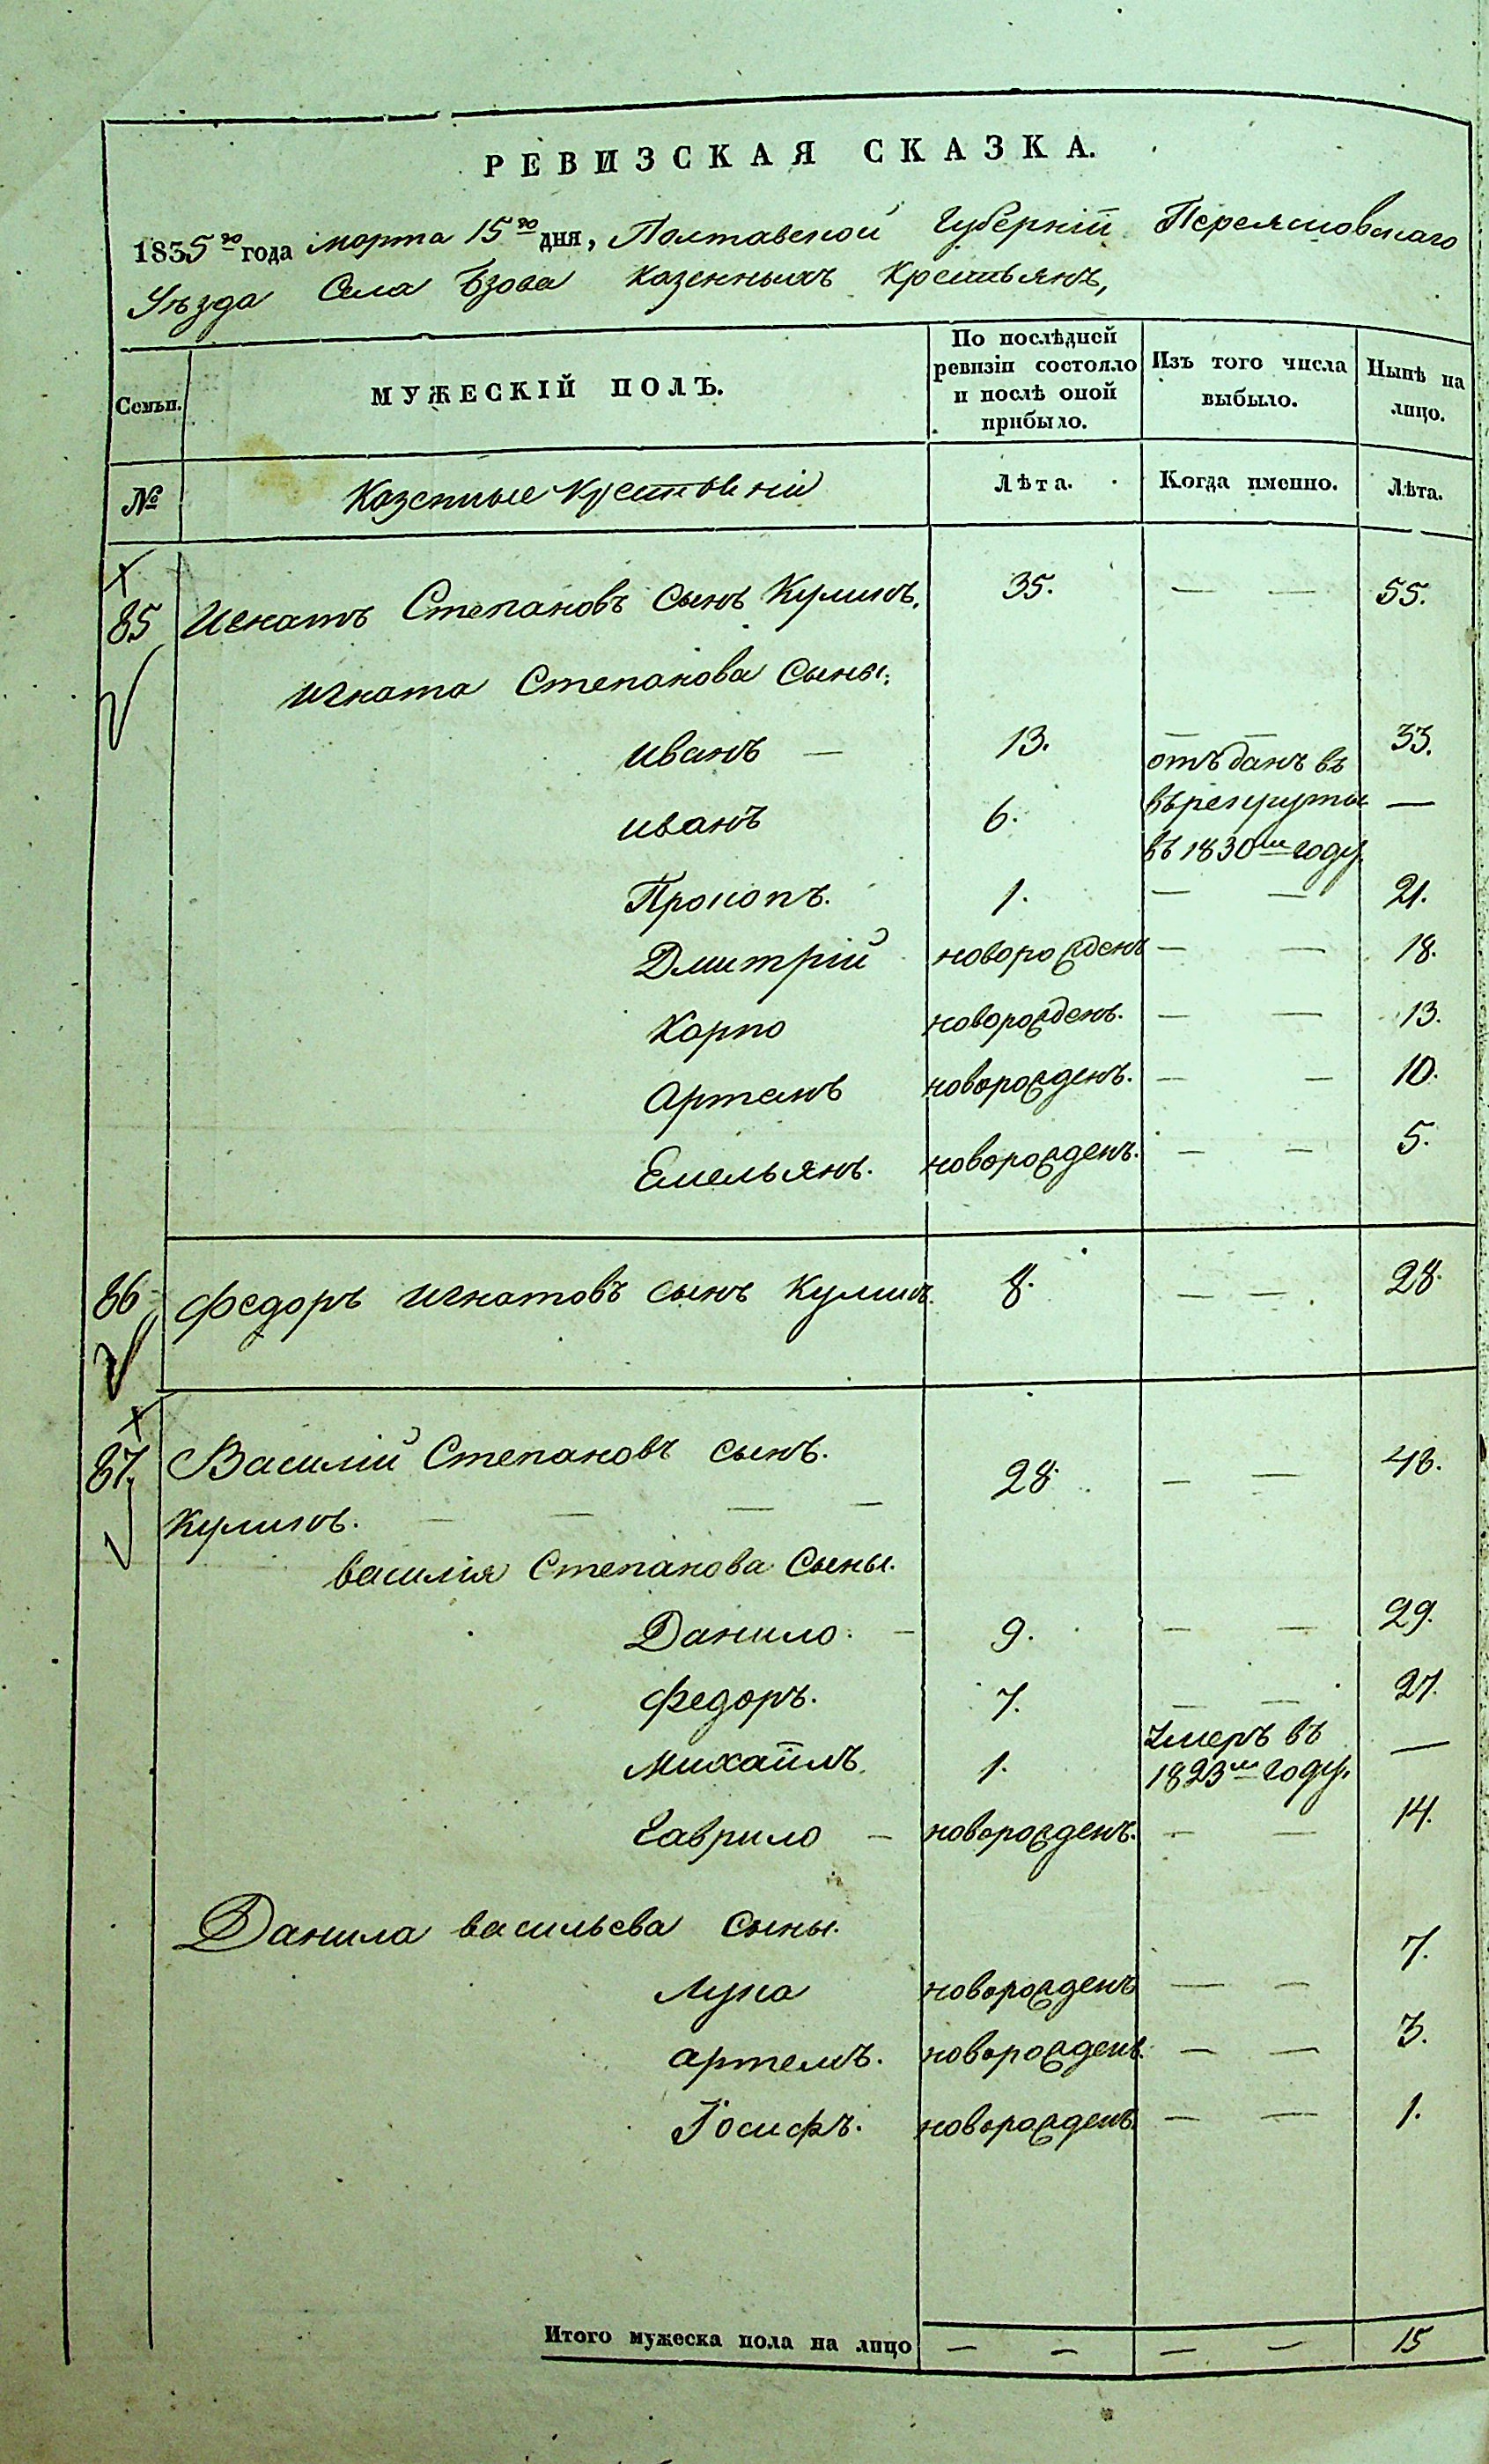 РЕВИЗСКАЯ СКАЗКА.
1835го года марта 15го дня, Полтавской Губерніи Переясловскаго
Уѣзда Села Бзова Казенныхъ Крестьянъ,
Семьи. МУЖЕСКІЙ ПОЛЪ. По послѣдней ревизіи состояло и послѣ оной прибыло. Изъ того числа выбыло. Нынѣ на лицо.
№ Казенные Крестьяни Лѣта. Когда именно. Лѣта.
85 Игнатъ Степановъ сынъ Куликъ. 35. — — 55.
Игната Степанова сыны:
иванъ — 13. — — 33.
иванъ 6. отъданъ въ въ рекруты въ 1830мъ году. —
Прокопъ. 1. — — 21.
Дмитрій новорожденъ — — 18.
Карпо новорожденъ. — — 13.
Артемъ новорожденъ. — — 10.
Емельянъ. новорожденъ. — — 5.
86 Федоръ Игнатовъ сынъ Куликъ. 8. — — 28.
87. Василій Степановъ сынъ. 28. — — 48.
Куликъ. — — — —
василія Степанова Сыны.
Данило. — 9. — — 29.
федоръ. 7. — — 27.
михаилъ. 1. умеръ въ 1823мъ году. —
Гаврило — новорожденъ. — — 14.
Данила васильева сыны.
Лука новорожденъ — — 7.
артемъ. новорожденъ. — — 3.
Іосифъ. новорожденъ. — — 1.
Итого мужеска пола на лицо — — — — 15